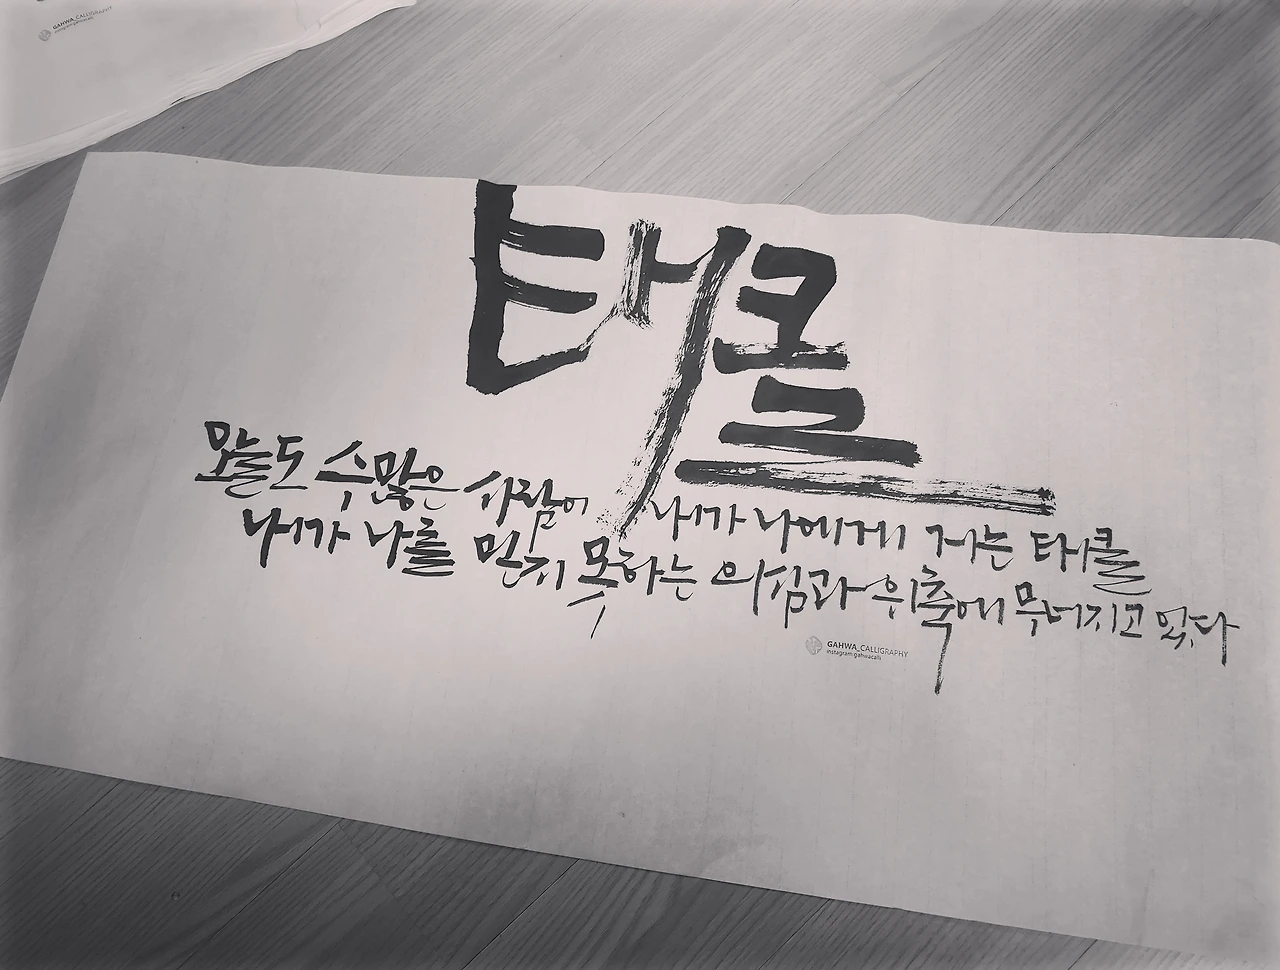 GAHWA_CALLIGRAPHY
instagram:gahwacalli
태클
오늘도 수많은 사람이 내가 나에게 거는 태클
내가 나를 믿지 못하는 의심과 위축에 무너지고 있다
GAHWA_CALLIGRAPHY
instagram:gahwacalli